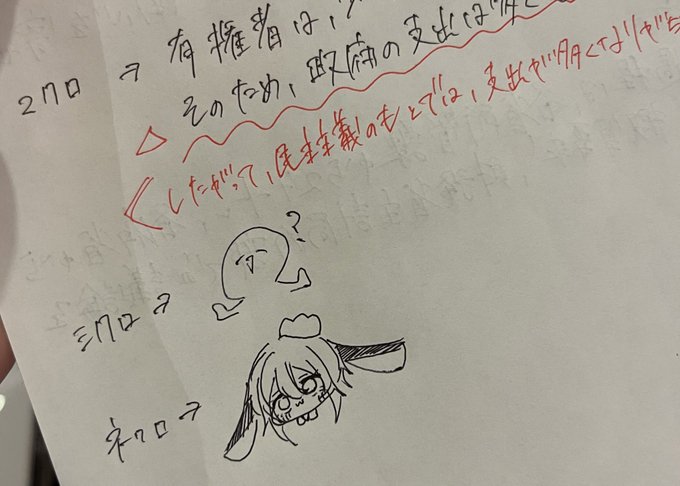 マクロ → 有権者は、
そのため、政府の支出は多く
したがって、民主主義のもとでは、支出が多くなりがち
?
ミクロ →
ネクロ →